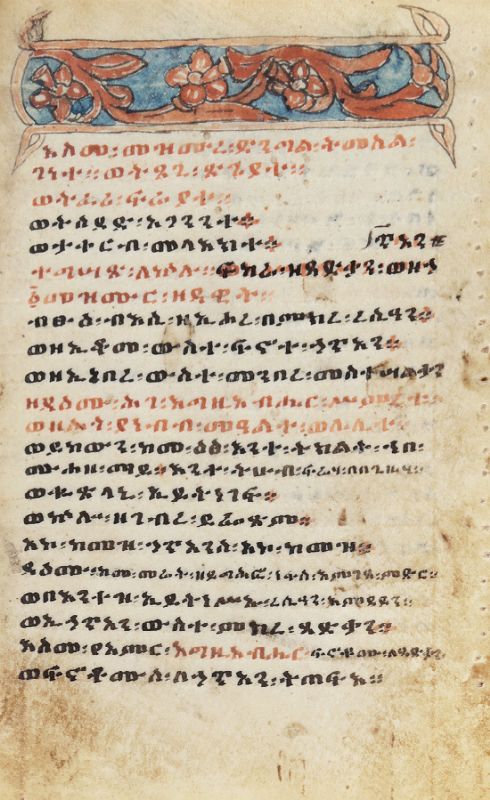 እስመ፡መዝሙረ፡ድንግል፡ትመስል፡
ገነተ፡ወትጼጊ፡ጽጌያተ፡፡
ወትፈሪ፡ፍሬያተ፡፡
ወትሰድድ፡አጋንንተ፡፡
ወታቀርብ፡መላእክተ፡፡ ጥአን፡፡
ተግሣጽ፡ለኵሉ፡ፍካሬ፡ዘጻድቃን፡ወዘኃ
፩መዝሙር፡ዘዳዊት፡፡
ብፁዕ፡ብእሲ፡ዘኢሖረ፡በምክረ፡ረሲዓን፡፡
ወዘኢቆመ፡ውስተ፡ፍኖተ፡ኃጥአን፡፡
ወዘኢነበረ፡ውስተ፡መንበረ፡መስተሳልቃን
ዘዳዕሙ፡ሕገ፡እግዚአብሔር፡ሥምረቱ፡፡
ወዘሕጎ፡ያነብብ፡መዓልተ፡ወሌሊተ፡፡
ወይከውን፡ከመ፡ዕፅ፡እንተ፡ትክልት፡ኀበ፡
ሙሐዘ፡ማይ፡እንተ፡ትሁብ፡ፍሬሃ፡በበጊዜሃ፡፡
ወቈጽላኒ፡ኢይትነገፍ፡፡
ወኵሎ፡ዘገብረ፡ይፌጽም፡፡
አኮ፡ከመዝ፡ኃጥአንሰ፡አኮ፡ከመዝ፡፡
ዳዕሙ፡ከመ፡መሬት፡ዘይግሕፎ፡ነፋስ፡እምገጸ፡ምድር፡፡
ወበእንተዝ፡ኢይትነሥኡ፡ረሲዓን፡እምደይን፡፡
ወኢኃጥአን፡ውስተ፡ምክረ፡ጻድቃን፡፡
እስመ፡ያአምር፡እግዚአብሔር፡ፍኖቶሙ፡ለጻድቃን፡
ወፍኖቶሙሰ፡ለኃጥአን፡ትጠፍእ፡፡